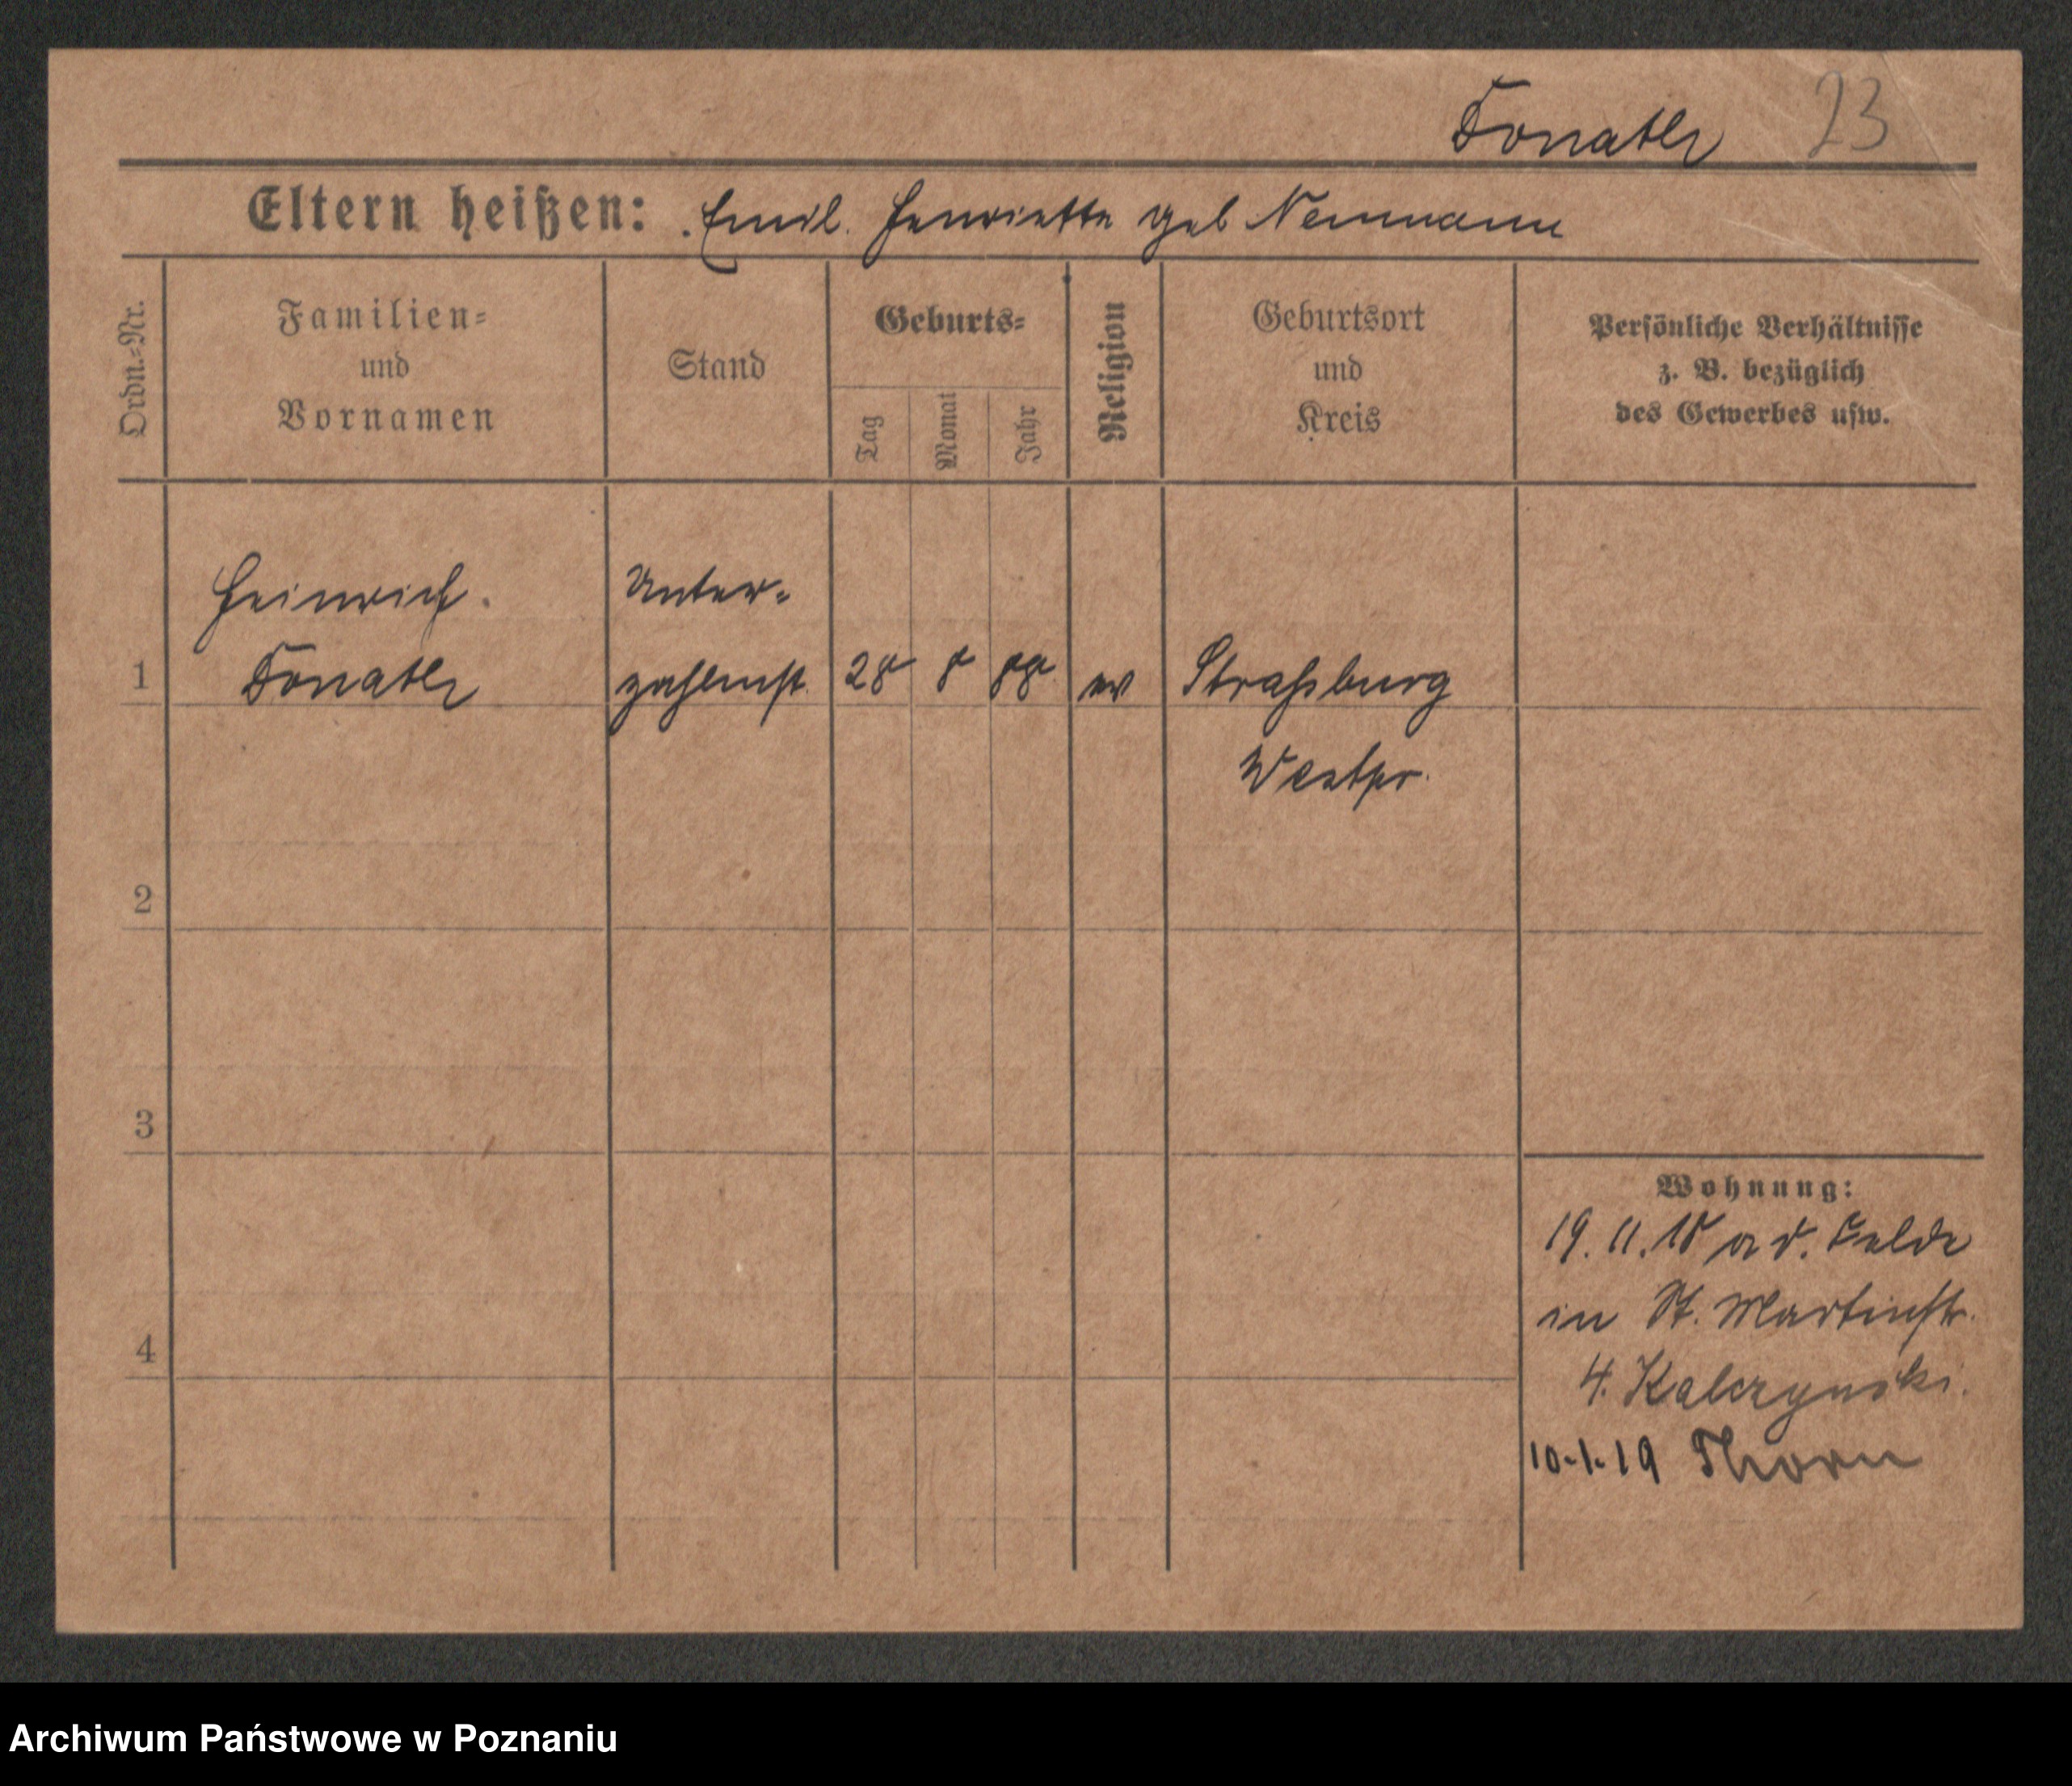 Donath 23
Eltern heißen: Emil. Henriette geb Neumann
Ordn.=Nr.
Familien=
und
Vornamen
Stand
Geburts=
Tag
Monat
Jahr
Religion
Geburtsort
und
Kreis
Persönliche Verhältnisse
z. B. bezüglich
des Gewerbes usw.
Heinrich. Unter=
1 Donath zahlmst. 28 8 88 ev Straßburg
Westpr.
2
3
4
Wohnung:
19. 11. 18 a d. Felde
in St. Martinstr.
4. Kalczynski.
10.1.19 Thorn
Archiwum Państwowe w Poznaniu